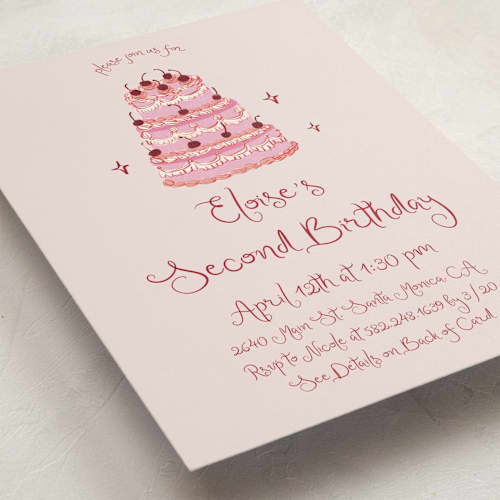 please join us for
Eloise's
Second Birthday
April 12th at 1:30 pm
2640 Main St Santa Monica CA
Rsvp to Nicole at 582.248.1639 by 3/20
See Details on Back of Card